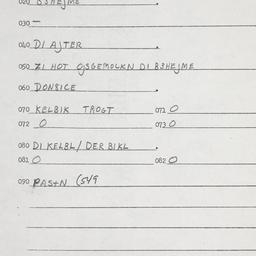 020 BƏHEJME .
030 —
040 DI AJTER .
050 ZI HOT OJSGEMOLKN DI BƏHEJME .
060 .
070 KELBIK TROGT 071 O
072 O 073 O
080 DI KELBL/ DER BIKL .
081 O 082 O
090 PASTN (549